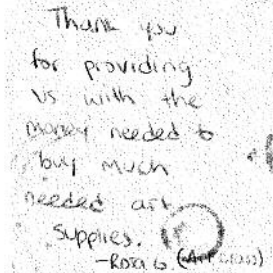 Thank you
for providing
us with the
money needed to
buy much
needed art
supplies.
-Rosa (Art Class)